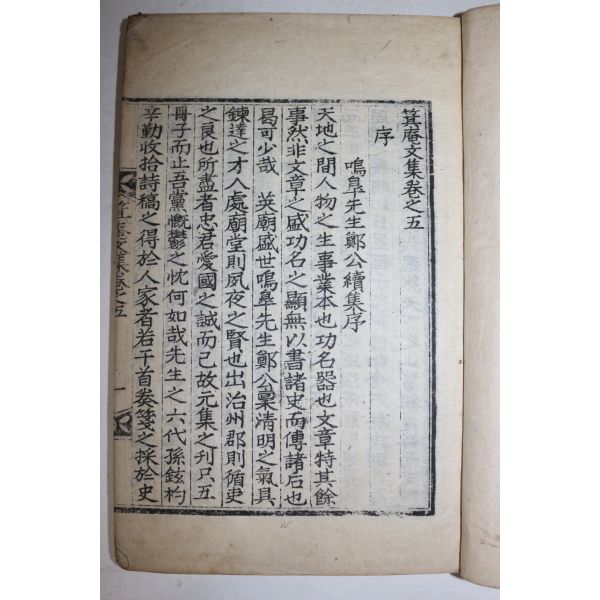 箕庵文集卷之五
序
鳴皐先生鄭公續集序
天地之間人物之生事業本也功名器也文章特其餘
事然非文章之盛功名之顯無以書諸史而傳諸后也
曷可少哉 英廟盛世鳴皐先生鄭公稟清明之氣具
鍊達之才入處廟堂則夙夜之賢也出治州郡則循吏
之良也所盡者忠君愛國之誠而已故元集之刊只五
冊子而止吾黨慨鬱之忱何如哉先生之六代孫鉉杓
辛勤收拾詩稿之得於人家者若干首奏箋之採於史
箕庵文集卷之五
一